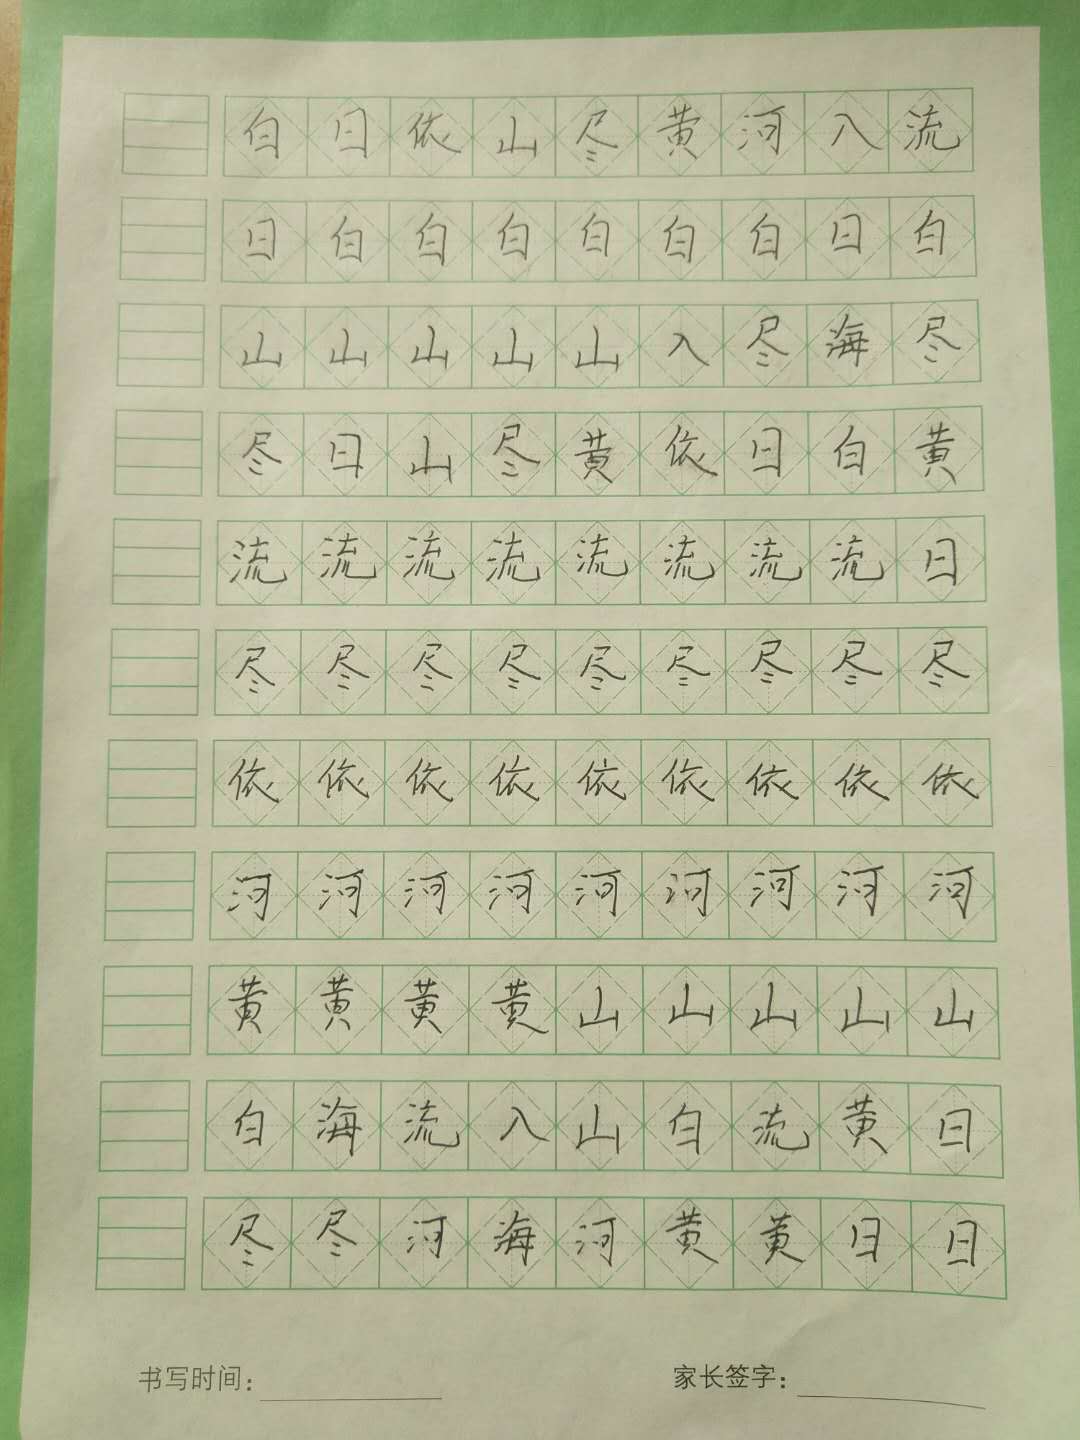 白日依山尽黄河入流
日白白白白白白日白
山山山山山入尽海尽
尽日山尽黄依日白黄
流流流流流流流流日
尽尽尽尽尽尽尽尽尽
依依依依依依依依依
河河河河河河河河河
黄黄黄黄山山山山山
白海流入山白流黄日
尽尽河海河黄黄日日
书写时间： 家长签字：